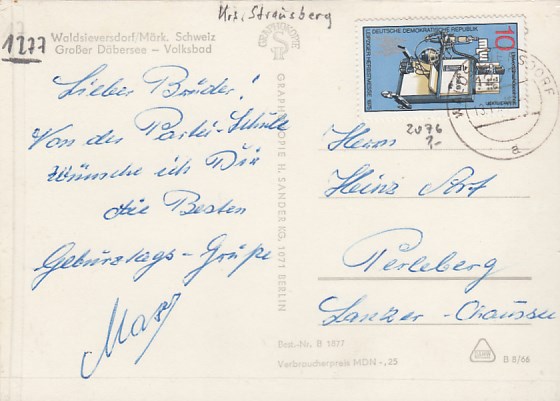 Krs. Strausberg
1277
Waldsieversdorf/Märk. Schweiz
Großer Däbersee — Volksbad
Lieber Bruder!
Von der Partei-Schule
wünsche ich Dir
die Besten
Geburtstags-Grüße
Max
GRAPHOKOPIE
GRAPHOKOPIE H. SANDER KG, 1071 BERLIN
DEUTSCHE DEMOKRATISCHE REPUBLIK
10
2076
2,-
Herrn
Heinz
Perleberg
Lanzer-Chaussee
a
Best.-Nr. B 1877
Verbraucherpreis MDN -,25
B 8/66